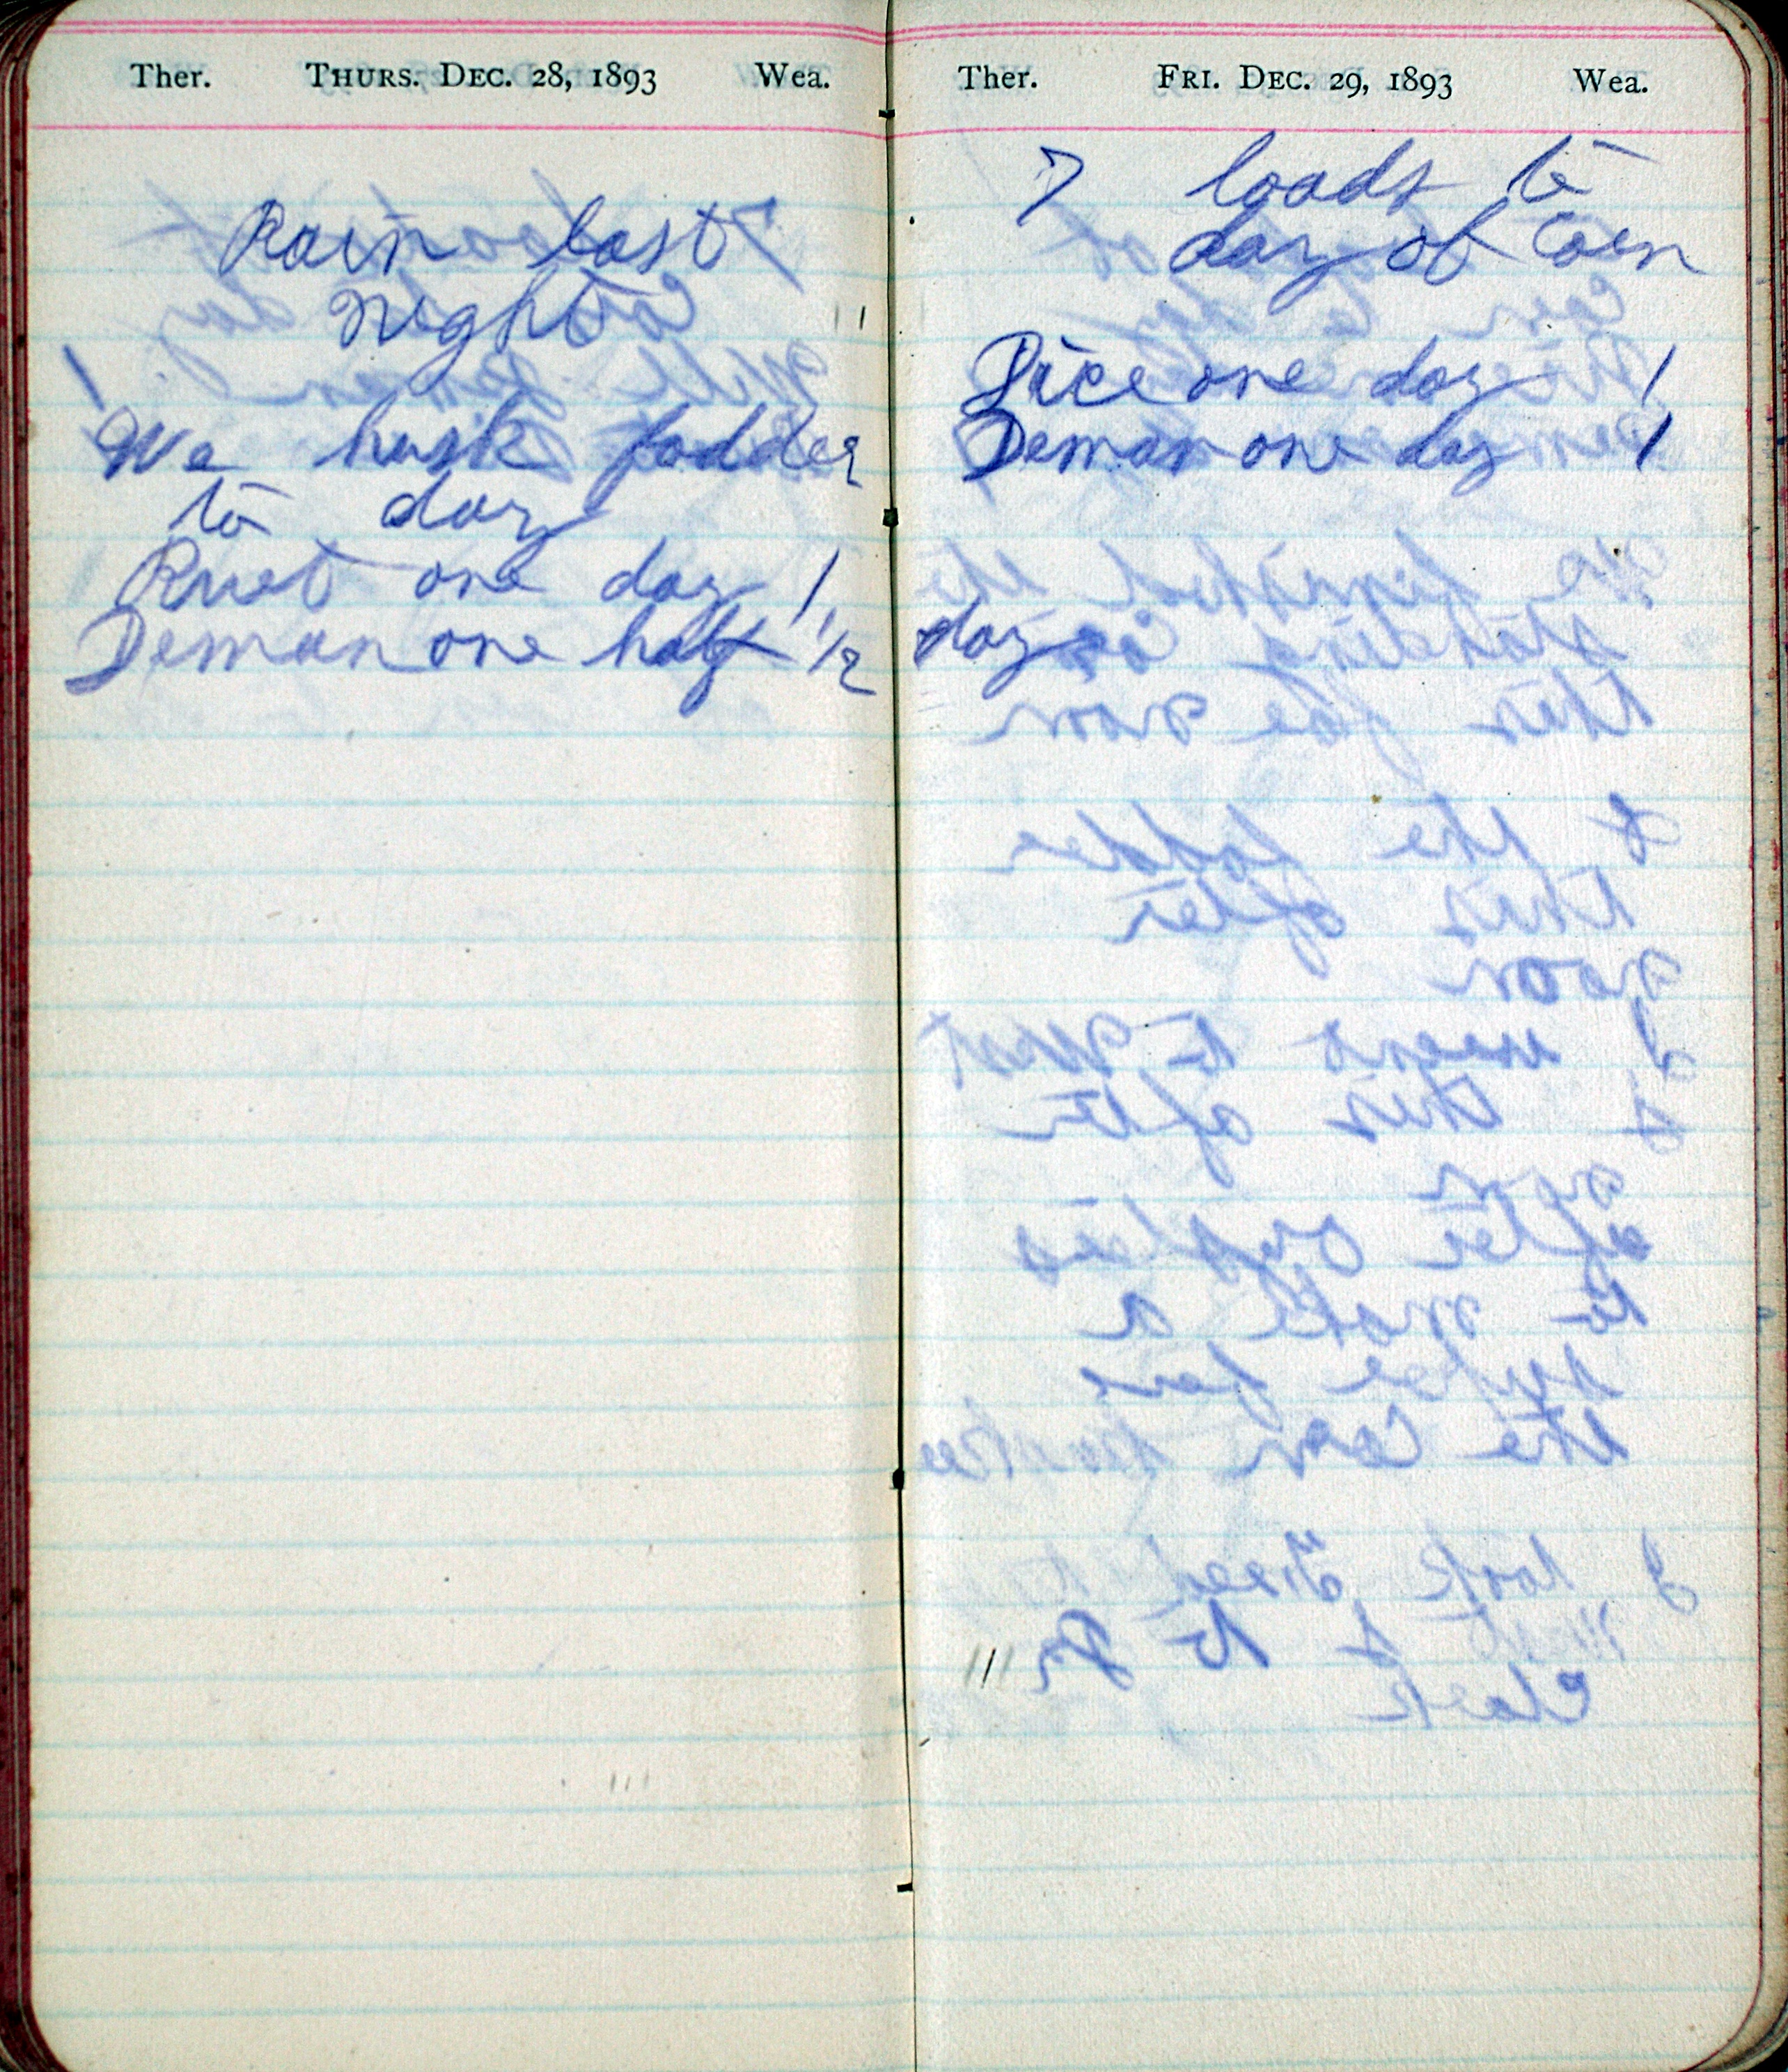 Ther. THURS. DEC. 28, 1893 Wea.
Rain last
night
We husk fodder
to day
one day 1
Deman one half 1/2 day
Ther. FRI. DEC. 29, 1893 Wea.
7 loads to
day of corn
Price one day 1
Deman one day 1